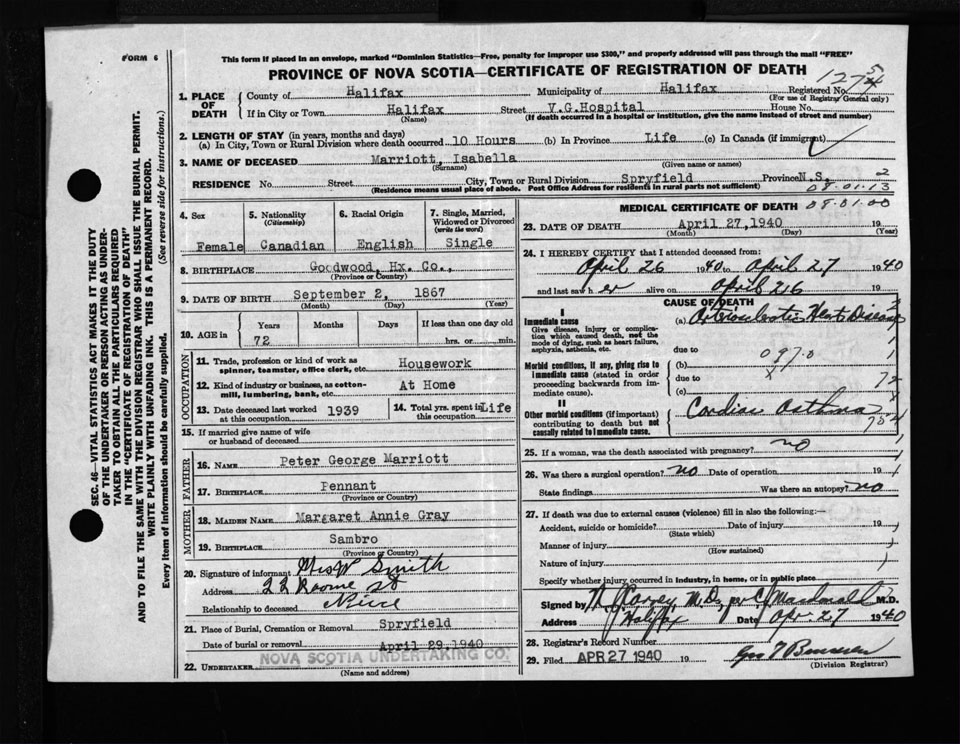 FORM 6
This form if placed in an envelope, marked "Dominion Statistics—Free, penalty for improper use $300," and properly addressed will pass through the mail "FREE"
PROVINCE OF NOVA SCOTIA—CERTIFICATE OF REGISTRATION OF DEATH
1. PLACE OF DEATH
County of Halifax Municipality of Halifax Registered No. 1275
(For use of Registrar General only)
If in City or Town Halifax Street V.G.Hospital House No.
(Name) (If death occurred in a hospital or institution, give the name instead of street and number)
2. LENGTH OF STAY (in years, months and days)
(a) In City, Town or Rural Division where death occurred 10 Hours (b) In Province Life (c) In Canada (if immigrant)
3. NAME OF DECEASED Marriott, Isabella
(Surname) (Given name or names)
RESIDENCE No. Street City, Town or Rural Division Spryfield Province N.S. 2
(Residence means usual place of abode. Post Office Address for residents in rural parts not sufficient) 08.01.13
08.01.00
4. Sex Female
5. Nationality (Citizenship) Canadian
6. Racial Origin English
7. Single, Married, Widowed or Divorced (write the word) Single
8. BIRTHPLACE Goodwood, Hx. Co.,
(Province or Country)
9. DATE OF BIRTH September 2, 1867
(Month) (Day) (Year)
10. AGE in Years Months Days If less than one day old
72 hrs. or min.
OCCUPATION
11. Trade, profession or kind of work as spinner, teamster, office clerk, etc. Housework
12. Kind of industry or business, as cotton-mill, lumbering, bank, etc. At Home
13. Date deceased last worked at this occupation 1939
14. Total yrs. spent in this occupation Life
15. If married give name of wife or husband of deceased
FATHER
16. NAME Peter George Marriott
17. BIRTHPLACE Pennant
(Province or Country)
MOTHER
18. MAIDEN NAME Margaret Annie Gray
19. BIRTHPLACE Sambro
(Province or Country)
20. Signature of informant Mrs W Smith
Address 22 Roome St
Relationship to deceased Niece
21. Place of Burial, Cremation or Removal Spryfield
Date of burial or removal April 29, 1940
22. UNDERTAKER NOVA SCOTIA UNDERTAKING CO.
(Name and address)
MEDICAL CERTIFICATE OF DEATH
23. DATE OF DEATH April 27, 1940 19
(Month) (Day) (Year)
24. I HEREBY CERTIFY that I attended deceased from:
April 26 1940 to April 27 1940
and last saw her alive on April 26 19
CAUSE OF DEATH
I
Immediate cause (a) Arteriosclerotic Heart Disease
Give disease, injury or complication which caused death, not the mode of dying, such as heart failure, asphyxia, asthenia, etc.
due to
Morbid conditions, if any, giving rise to immediate cause (stated in order proceeding backwards from immediate cause). (b) 097.0
due to
(c) 72
II
Other morbid conditions (if important) contributing to death but not causally related to immediate cause. Cardiac Asthma
25. If a woman, was the death associated with pregnancy? no
26. Was there a surgical operation? no Date of operation 19
State findings Was there an autopsy? no
27. If death was due to external causes (violence) fill in also the following:—
Accident, suicide or homicide? Date of injury 19
(State which)
Manner of injury
(How sustained)
Nature of injury
Specify whether injury occurred in industry, in home, or in public place
Signed by M.D., per C.J. Macdonald M.D.
Address Halifax Date Apr. 27 1940
28. Registrar's Record Number
29. Filed APR 27 1940 19
(Division Registrar)
SEC. 46—VITAL STATISTICS ACT MAKES IT THE DUTY
OF THE UNDERTAKER OR PERSON ACTING AS UNDER-
TAKER TO OBTAIN ALL THE PARTICULARS REQUIRED
IN THE "CERTIFICATE OF REGISTRATION OF DEATH"
AND TO FILE THE SAME WITH THE DIVISION REGISTRAR WHO SHALL ISSUE THE BURIAL PERMIT.
WRITE PLAINLY WITH UNFADING INK. THIS IS A PERMANENT RECORD.
Every item of information should be carefully supplied. (See reverse side for instructions.)